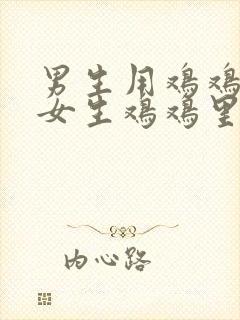 男生用鸡鸡
女生鸡鸡里
内心路